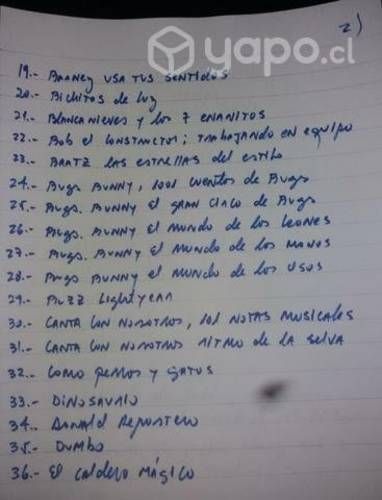 yapo.cl
2)
19.- BARNEY USA TUS SENTIDOS
20.- Bichitos de luz
21.- BLANCANIEVES y los 7 ENANITOS
22.- Bob el CONSTRUCTOR; TRABAJANDO EN EQUIPO
23.- BRATZ LAS ESTRELLAS del ESTILO
24.- Bugs BUNNY, 1001 CUENTOS de Bugs
25.- Bugs. BUNNY El GRAN CIRCO de Bugs
26.- Bugs. BUNNY El MUNDO de los LEONES
27.- Bugs. BUNNY El MUNDO de los MONOS
28.- Bugs BUNNY el MUNDO de los OSOS
29.- BUZZ LIGHTYEAR
30.- CANTA CON NOSOTROS, 101 NOTAS MUSICALES
31.- CANTA CON NOSOTROS RITMO de la SELVA
32.- COMO PERROS y GATOS
33.- DINOSAURIO
34.. DONALD REPORTERO
35.- DUMBO
36.- El CALDERO MÁGICO